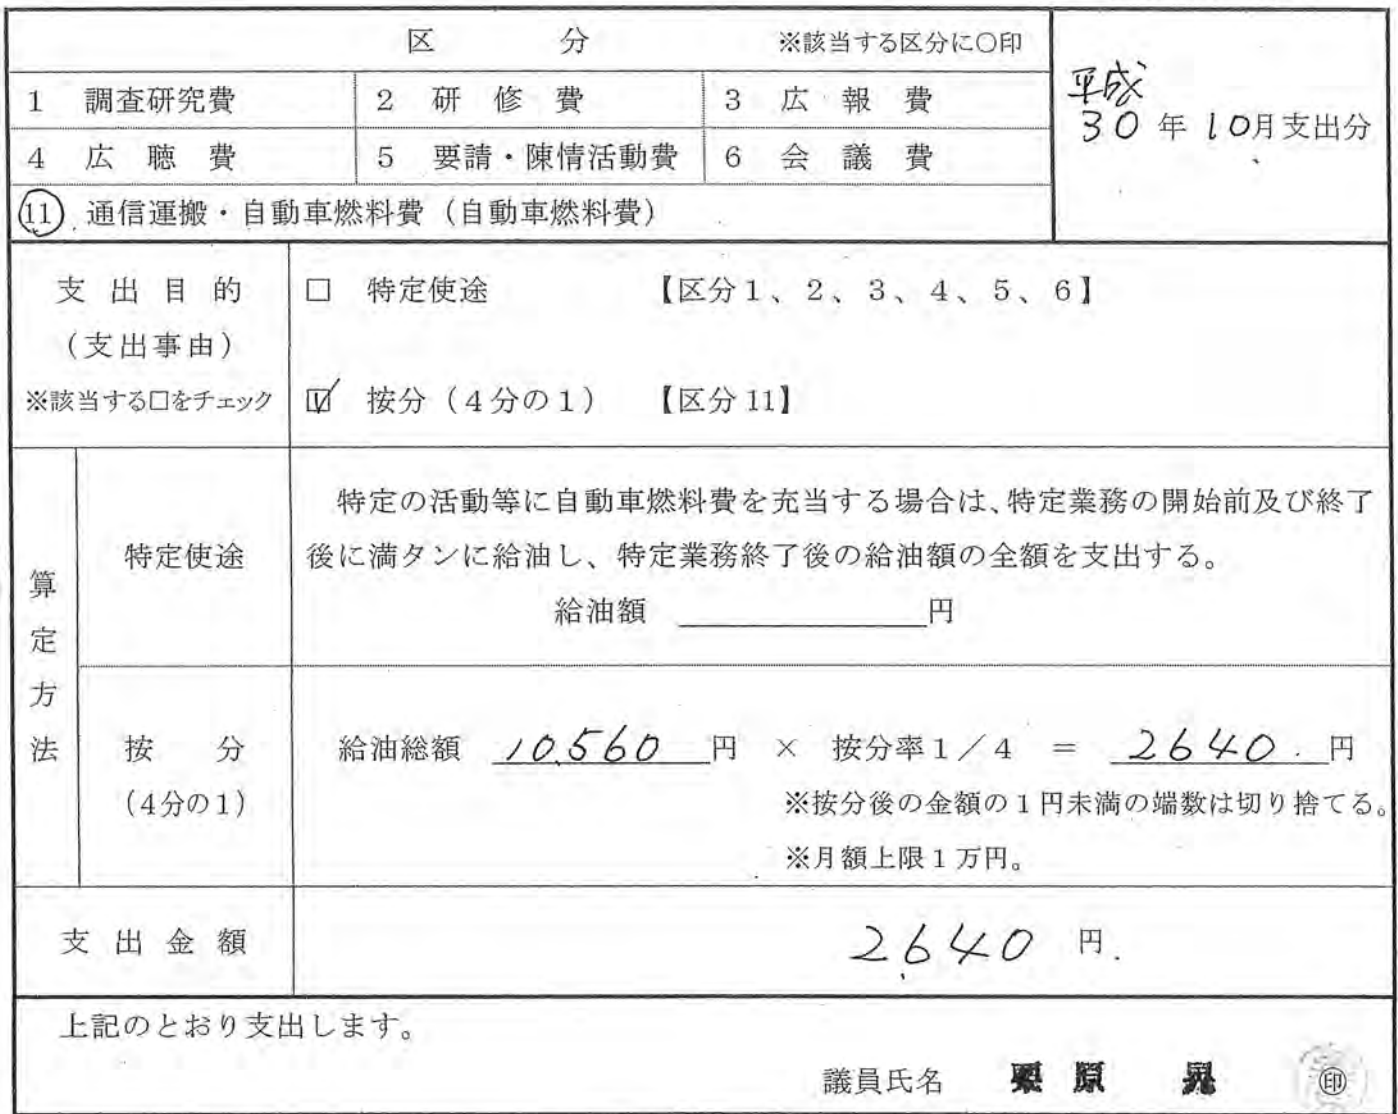 区 分 ※該当する区分に○印
平成
30年10月支出分
1 調査研究費 2 研修費 3 広報費
4 広聴費 5 要請・陳情活動費 6 会議費
11 通信運搬・自動車燃料費(自動車燃料費)
支出目的
(支出事由)
※該当する□をチェック
□ 特定使途 【区分1、2、3、4、5、6】
☑ 按分(4分の1) 【区分11】
算定方法
特定使途
特定の活動等に自動車燃料費を充当する場合は、特定業務の開始前及び終了
後に満タンに給油し、特定業務終了後の給油額の全額を支出する。
給油額 円
按分
(4分の1)
給油総額 10,560 円 × 按分率1/4 = 2640. 円
※按分後の金額の1円未満の端数は切り捨てる。
※月額上限1万円。
支出金額
2,640 円.
上記のとおり支出します。
議員氏名 原 ㊞